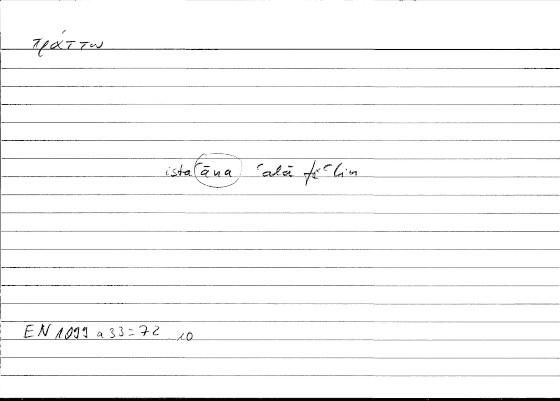 πράττω
istaʿāna ʿalā fiʿlin
EN 1099 a 33 = 72 10